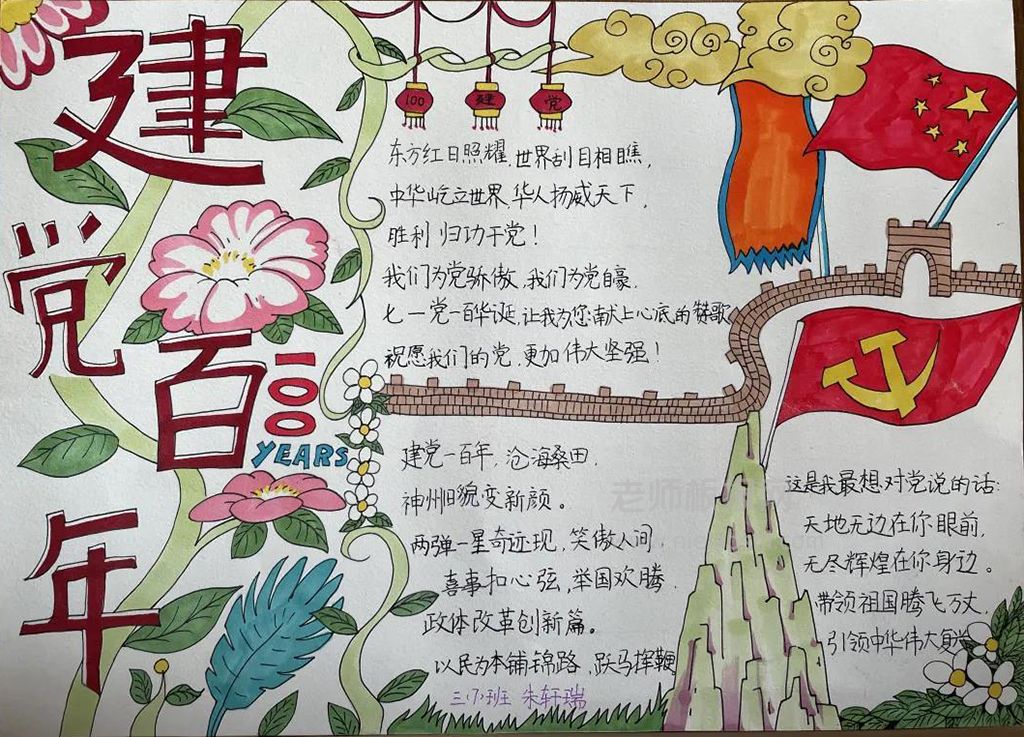 建党百年
100
YEARS
100 建 党
东方红日照耀,世界刮目相瞧,
中华屹立世界,华人扬威天下,
胜利归功于党!
我们为党骄傲,我们为党自豪.
七一党一百华诞,让我为您献上心底的赞歌
祝愿我们的党,更加伟大坚强!
建党一百年,沧海桑田.
神州旧貌变新颜。
两弹一星奇迹现,笑傲人间,
喜事扣心弦,举国欢腾.
政体改革创新篇。
以民为本铺锦路,跃马挥鞭
三(7)班 朱轩瑞
这是我最想对党说的话:
天地无边在你眼前,
无尽辉煌在你身边。
带领祖国腾飞万丈,
引领中华伟大复兴